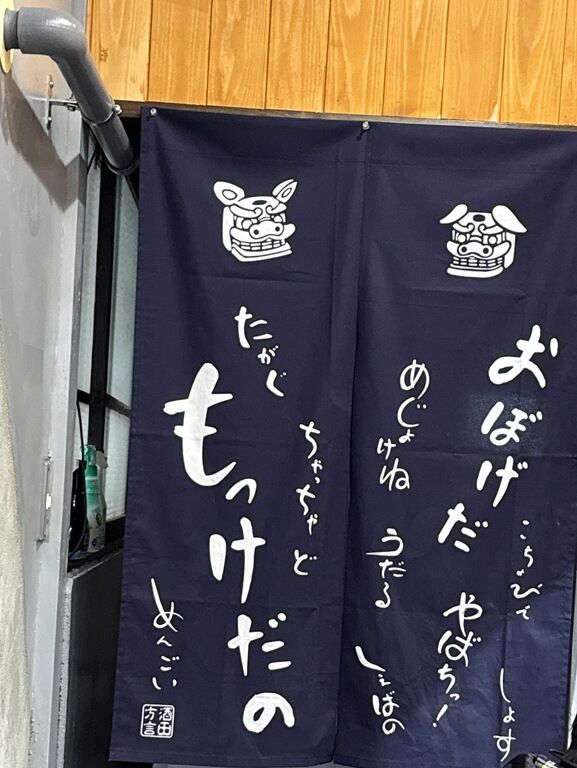 おぼげだ
こちょびで
しょす
やばちっ!
めじょけね
うだる
しぇばの
ちゃっちゃど
たがじ
もっけだの
めんごい
酒田
方言